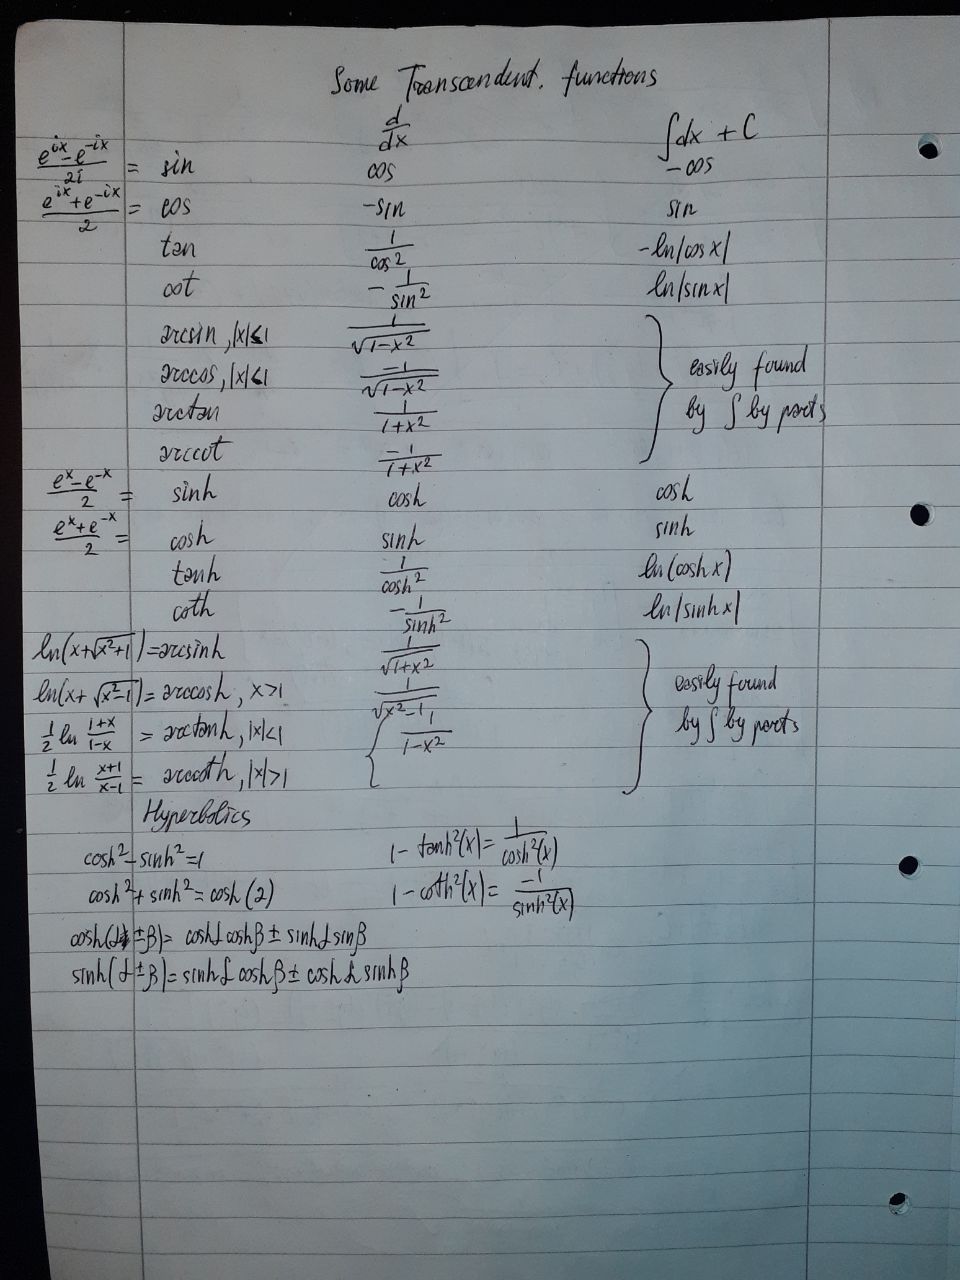 Some Transcendent. functions
d/dx ∫dx + C
(e^ix - e^-ix)/2i = sin cos -cos
(e^ix + e^-ix)/2 = cos -sin sin
tan 1/cos² -ln|cos x|
cot -1/sin² ln|sin x|
arcsin, |x|<1 1/√(1-x²)
arccos, |x|<1 -1/√(1-x²) } easily found
arctan 1/(1+x²) by ∫ by parts
arccot -1/(1+x²)
(e^x - e^-x)/2 = sinh cosh cosh
(e^x + e^-x)/2 = cosh sinh sinh
tanh 1/cosh² ln(cosh x)
coth -1/sinh² ln|sinh x|
ln(x+√(x²+1)) = arcsinh 1/√(1+x²)
ln(x+√(x²-1)) = arccosh, x>1 1/√(x²-1) } easily found
1/2 ln (1+x)/(1-x) = arctanh, |x|<1 { 1/(1-x²) by ∫ by parts
1/2 ln (x+1)/(x-1) = arccoth, |x|>1
Hyperbolics
cosh² - sinh² = 1 1 - tanh²(x) = 1/cosh²(x)
cosh² + sinh² = cosh(2) 1 - coth²(x) = -1/sinh²(x)
cosh(α ± β) = coshα coshβ ± sinhα sinβ
sinh(α ± β) = sinhα coshβ ± coshα sinhβ